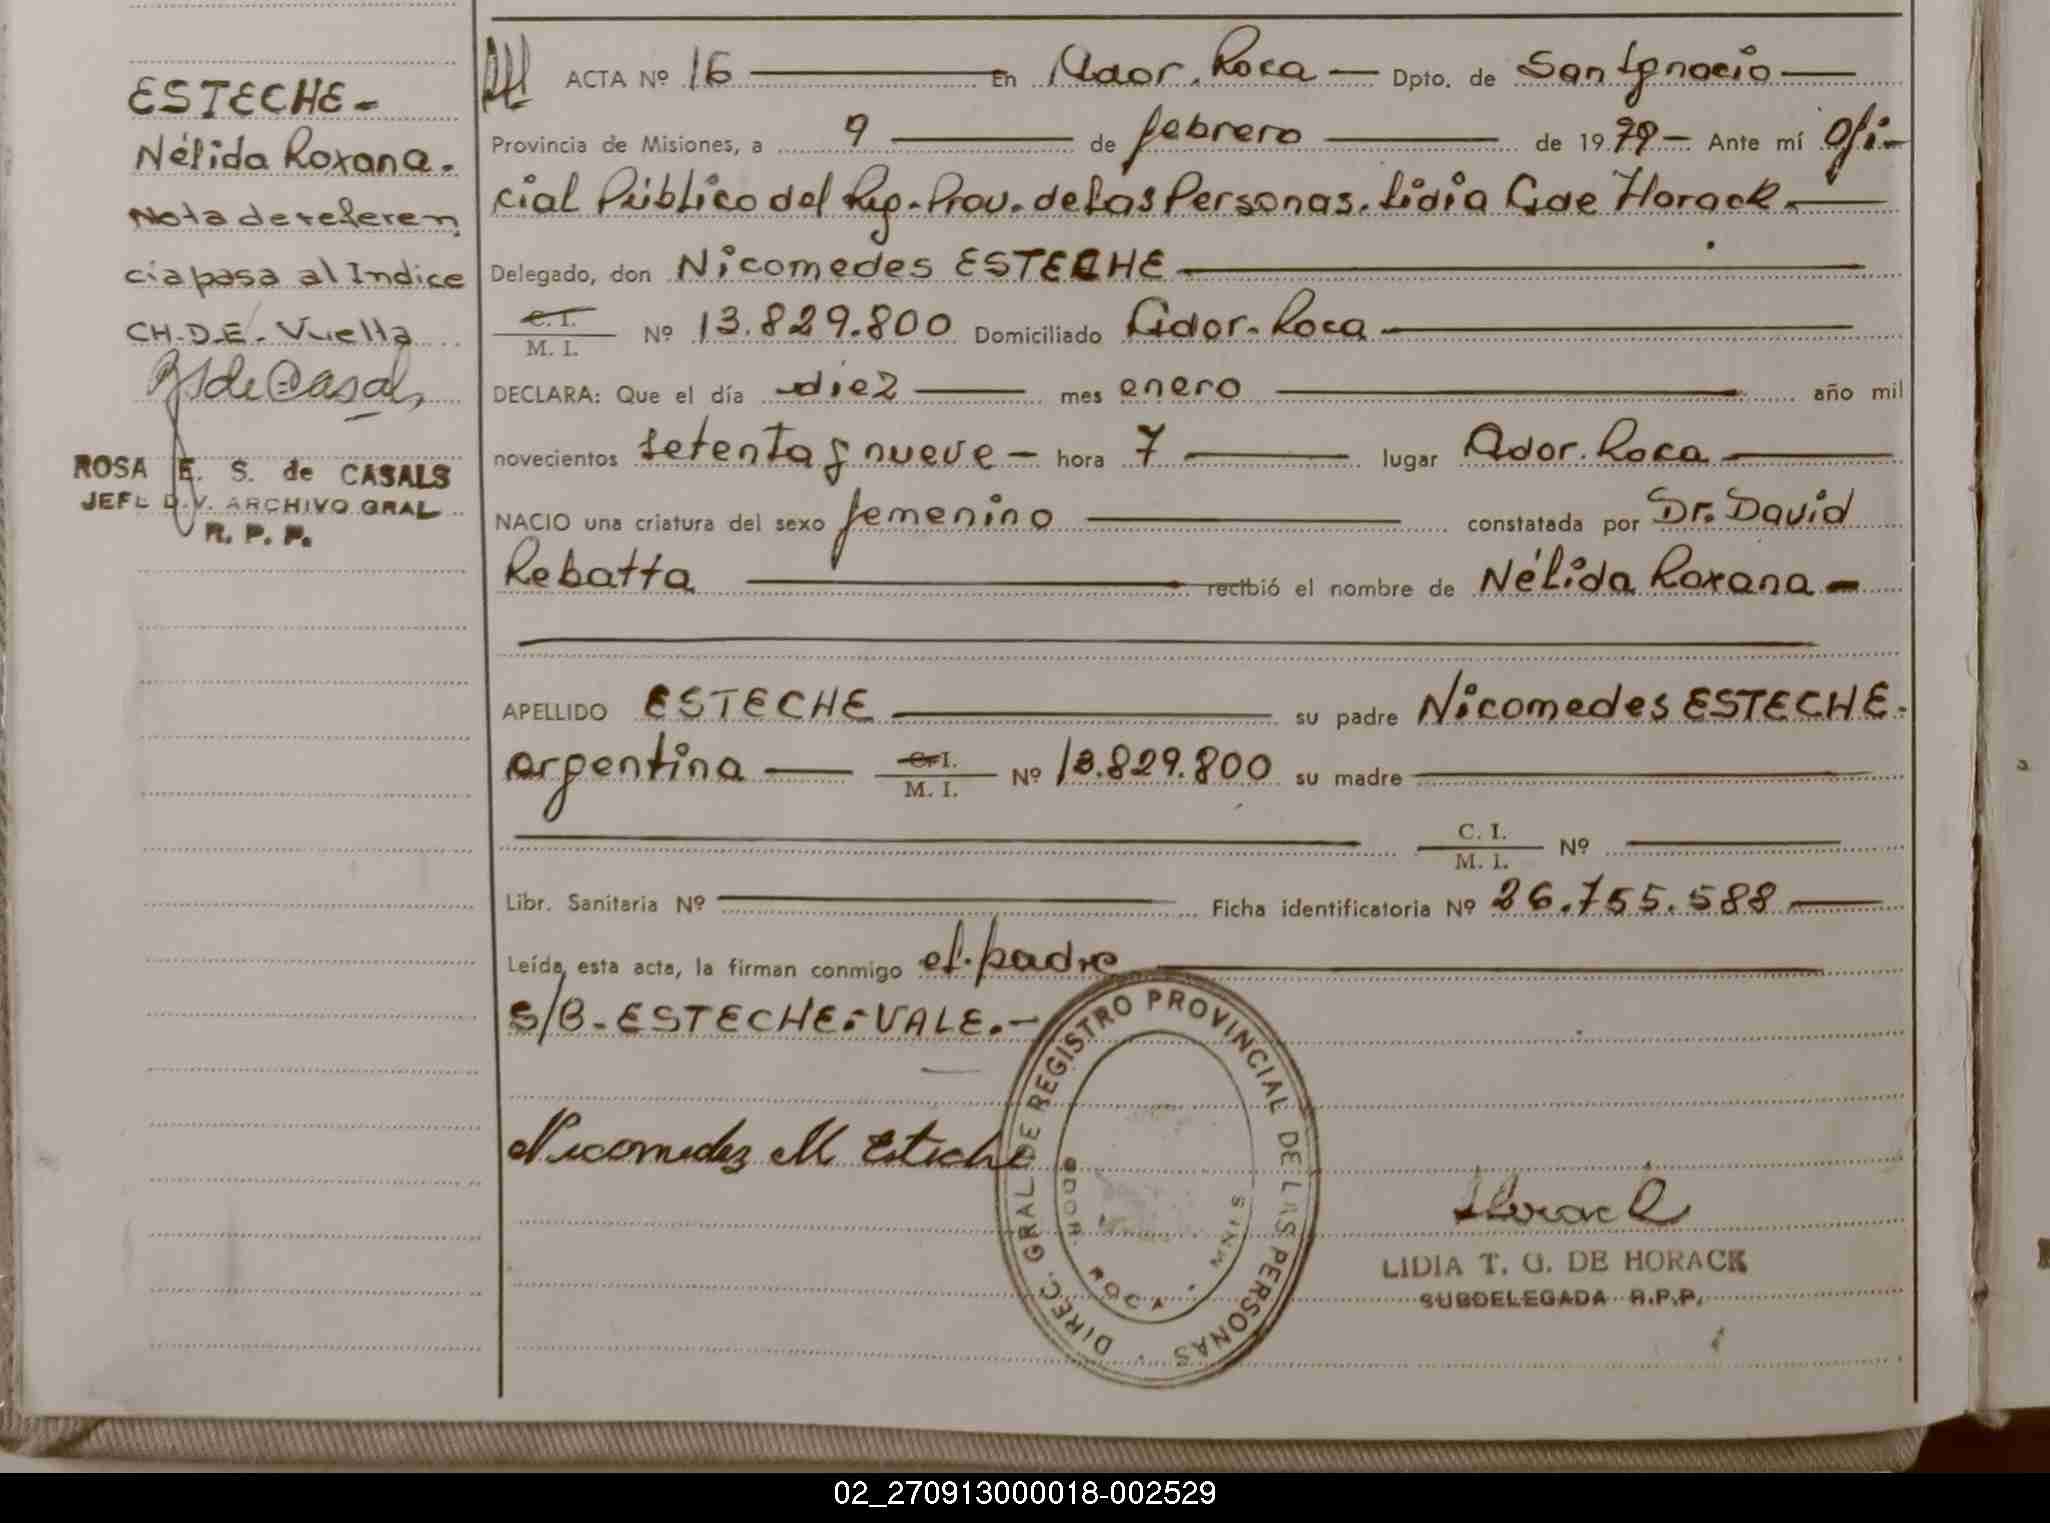 ESTECHE-
Nélida Roxana.
Nota de referen
cia pasa al Indice
CH.D.E. Vuelta
ROSA E. S. de CASALS
JEFE DIV. ARCHIVO GRAL
R. P. P.
ACTA Nº 16 En Gdor. Roca Dpto. de San Ignacio
Provincia de Misiones, a 9 de febrero de 1979 Ante mí Ofi-
cial Público del Reg. Prov. de las Personas. Lidia G de Horack
Delegado, don Nicomedes ESTECHE
C. I. / M. I. Nº 13.829.800 Domiciliado Gdor. Roca
DECLARA: Que el día diez mes enero año mil
novecientos setenta y nueve hora 7 lugar Gdor. Roca
NACIO una criatura del sexo femenino constatada por Dr. David
Rebatta recibió el nombre de Nélida Roxana
APELLIDO ESTECHE su padre Nicomedes ESTECHE.
argentina C. I. / M. I. Nº 13.829.800 su madre
C. I. / M. I. Nº
Libr. Sanitaria Nº Ficha identificatoria Nº 26.755.588
Leída esta acta, la firman conmigo el padre
S/B. ESTECHE. VALE.-
Nicomedez M Esteche
DIREC. GRAL DE REGISTRO PROVINCIAL DE LAS PERSONAS
GDOR. ROCA - MNES
Horack
LIDIA T. G. DE HORACK
SUBDELEGADA R.P.P.
02_270913000018-002529